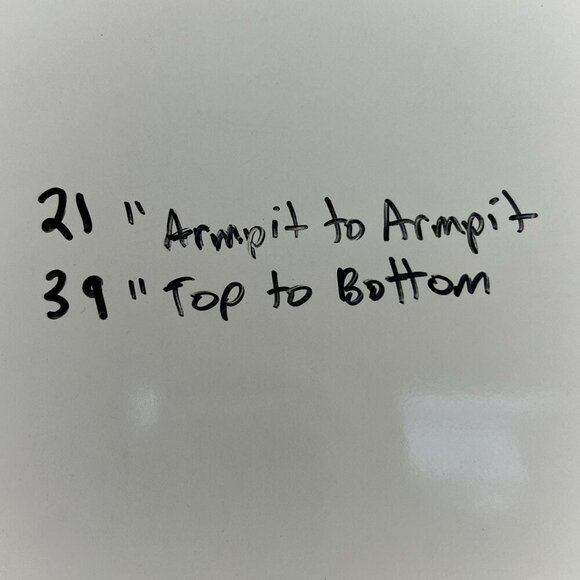 21 " Armpit to Armpit
39 " Top to Bottom